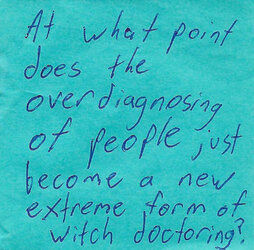 At what point
does the
overdiagnosing
of people just
become a new
extreme form of
witch doctoring?